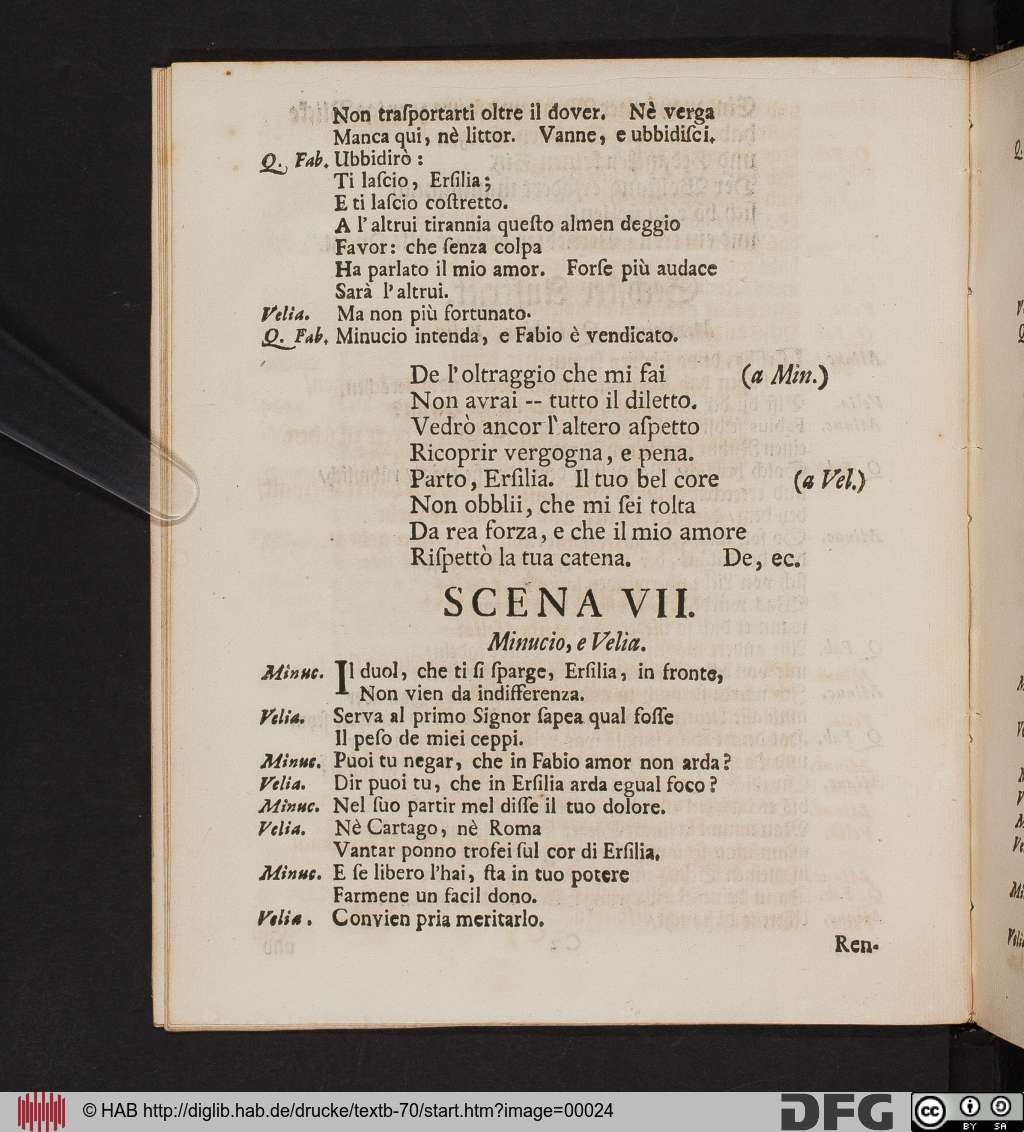 Non traſportarti oltre il dover. Nè verga
Manca qui, nè littor. Vanne, e ubbidiſci.
Q. Fab. Ubbidirò :
Ti laſcio, Erſilia;
E ti laſcio coſtretto.
A l'altrui tirannia queſto almen deggio
Favor: che ſenza colpa
Ha parlato il mio amor. Forſe più audace
Sarà l'altrui.
Velia. Ma non più fortunato.
Q. Fab. Minucio intenda, e Fabio è vendicato.
De l'oltraggio che mi fai (a Min.)
Non avrai -- tutto il diletto.
Vedrò ancor l'altero aſpetto
Ricoprir vergogna, e pena.
Parto, Erſilia. Il tuo bel core (a Vel.)
Non obblii, che mi ſei tolta
Da rea forza, e che il mio amore
Riſpettò la tua catena. De, ec.
SCENA VII.
Minucio, e Velia.
Minuc. Il duol, che ti ſi ſparge, Erſilia, in fronte,
Non vien da indifferenza.
Velia. Serva al primo Signor ſapea qual foſſe
Il peſo de miei ceppi.
Minuc. Puoi tu negar, che in Fabio amor non arda?
Velia. Dir puoi tu, che in Erſilia arda egual foco?
Minuc. Nel ſuo partir mel diſſe il tuo dolore.
Velia. Nè Cartago, nè Roma
Vantar ponno trofei ſul cor di Erſilia.
Minuc. E ſe libero l'hai, ſta in tuo potere
Farmene un facil dono.
Velia. Convien pria meritarlo.
Ren-
© HAB http://diglib.hab.de/drucke/textb-70/start.htm?image=00024
DFG
cc
BY SA